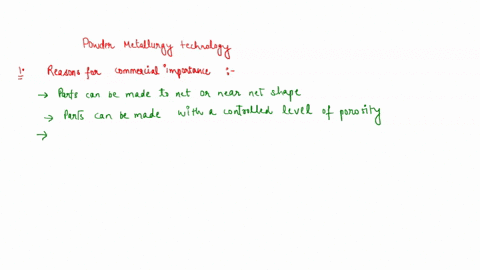 Powder Metallurgy technology
1. Reasons for commercial importance :-
→ Parts can be made to net or near net shape
→ Parts can be made with a controlled level of porosity
→